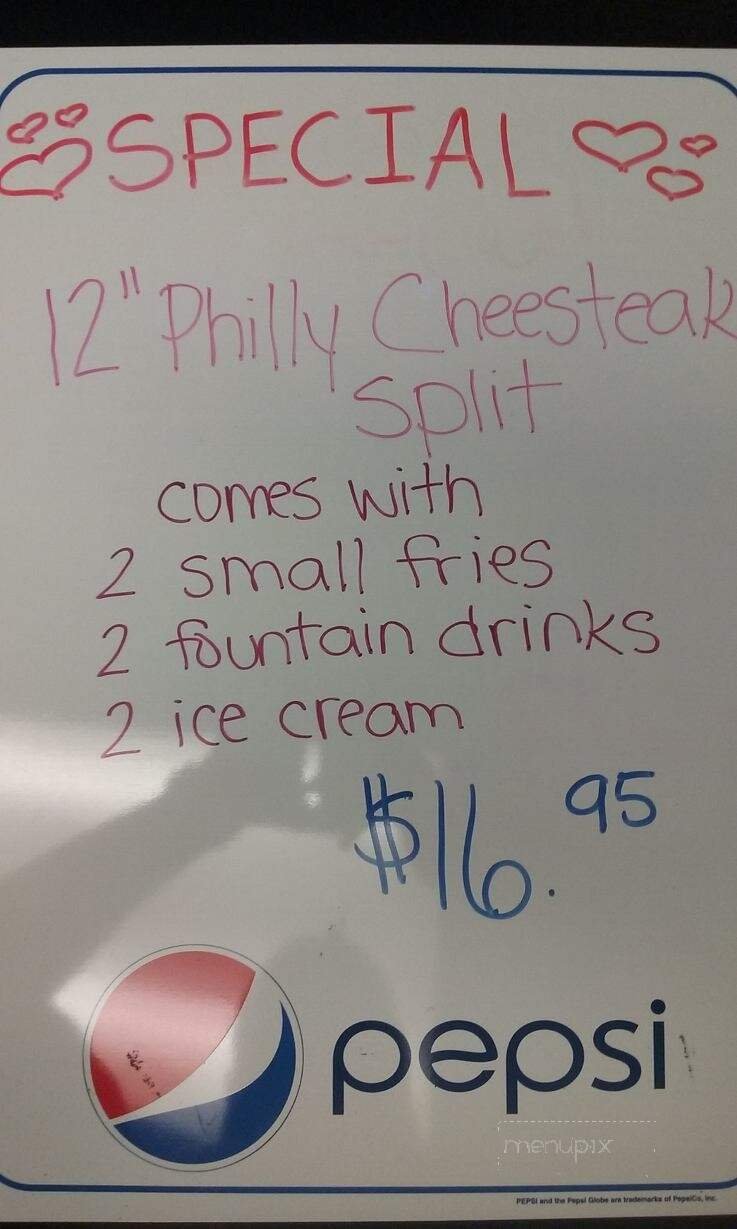 SPECIAL
12" Philly Cheesteak
split
comes with
2 small fries
2 fountain drinks
2 ice cream
$16.95
pepsi
menupix
PEPSI and the Pepsi Globe are trademarks of PepsiCo, Inc.